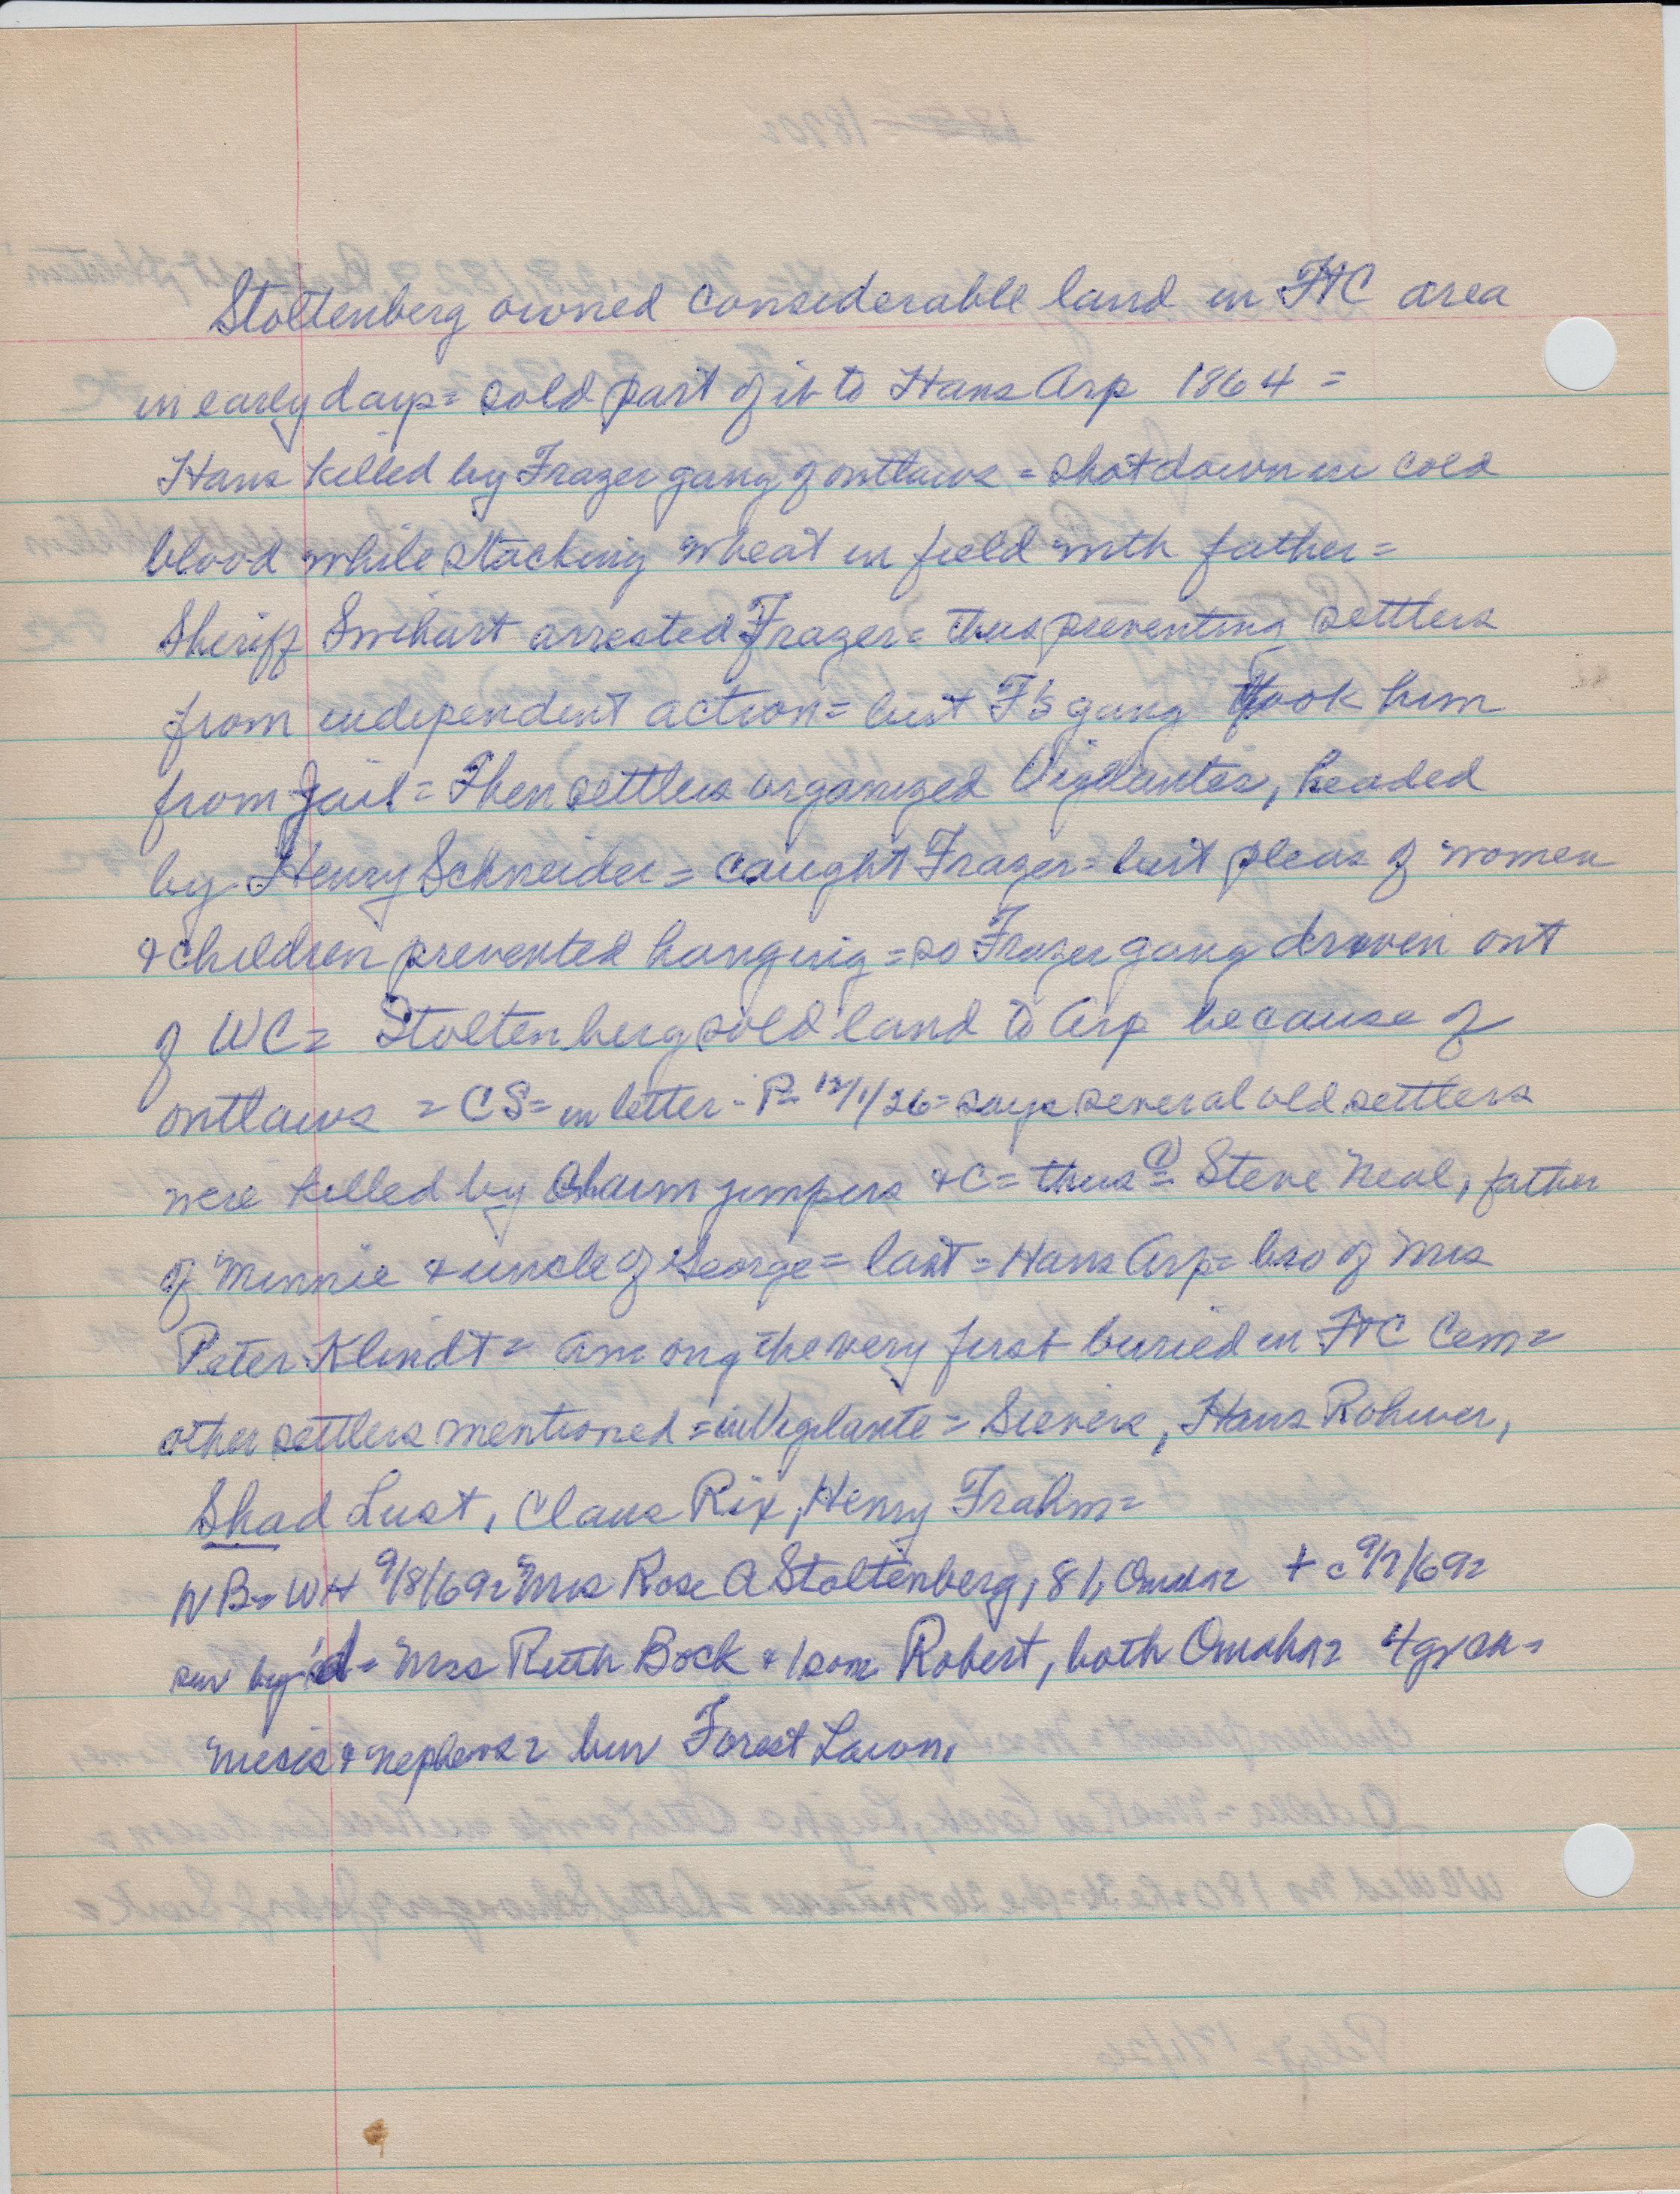 Stoltenberg owned considerable land in FtC area
in early days = sold part of it to Hans Arp 1864 =
Hans killed by Frazer gang of outlaws = shot down in cold
blood while stacking wheat in field with father =
Sheriff Swihart arrested Frazer = thus preventing settlers
from independent action = but F's gang took him
from jail = Then settlers organized Vigilantes, headed
by Henry Schneider = caught Frazer = but pleas of women
& children prevented hanging = so Frazer gang driven out
of WC = Stoltenberg sold land to Arp because of
outlaws = CS = in letter - P = 12/1/26 = says several old settlers
were killed by claim jumpers &C = thus = Steve Neal, father
of Minnie & uncle of George = last = Hans Arp = bro of Mrs
Peter Klindt = among the very first buried in FtC Cem =
other settlers mentioned = in Vigilante = Sievers, Hans Rohwer,
Shad Lust, Claus Rix, Henry Frahm =
NB = WH 9/8/69 = Mrs Rose A Stoltenberg, 81, Omaha = + c 9/7/69 =
sur by 1d = Mrs Ruth Bock & 1 son Robert, both Omaha = 4 gr ch =
nieces & nephews = bur Forest Lawn.